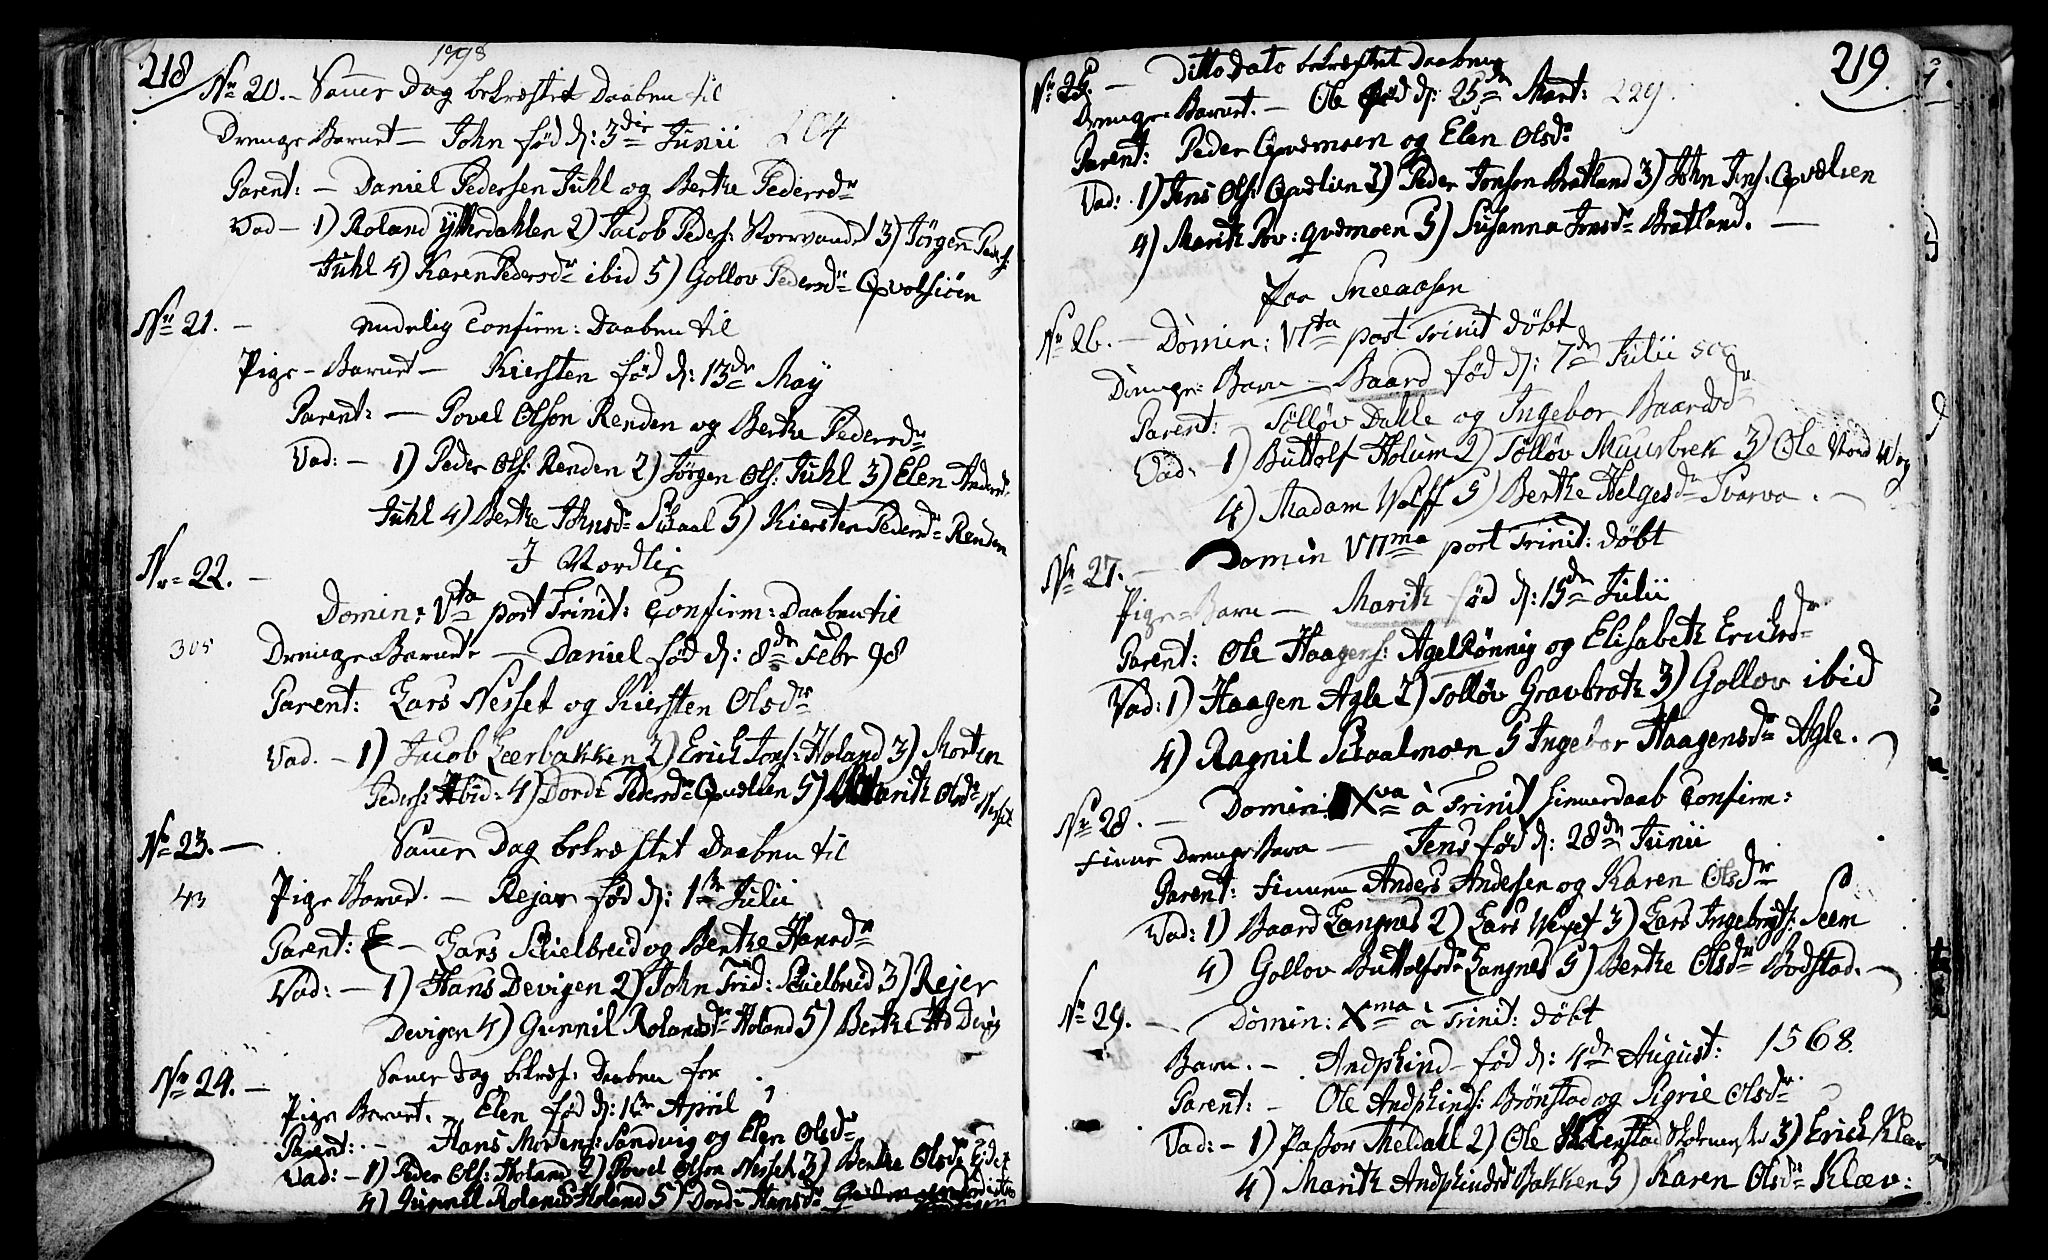 218
1798
No 20. – Samme Dag bekræftet Daaben til
Drenge Barnet – John fød d: 3die Junii 204
Parent: – Daniel Pedersen Juhl og Berthe Pedersdr
Vad – 1) Roland Ytterdahlen 2) Jacob Peders: Storvande 3) Jörgen Peders:
Juhl 4) Karen Pedersdr ibid 5) Gollov Pedersdr Qvolsiöen
No 21. – nudelig Confirm: Daaben til
Pige-Barnet – Kiersten fød d: 13de May
Parent: – Povel Olson Renden og Berthe Pedersdr
Vad: – 1) Peder Ols: Renden 2) Jörgen Ols: Juhl 3) Elen Andersdr
Juhl 4) Berthe Johnsdr Skaal 5) Kiersten Pedersdr Renden
I Nordlie
Nr 22. –
Domin: Vta post Trinit: Confirm: Daaben til
305 Drenge Barnet – Daniel fød d: 8de Febr 98
Parent: Lars Nesset og Kiersten Olsdr
Vad. – 1) Jacob Leerbakken 2) Erich Jons: Holand 3) Morten
Peders: ibid: 4) Dordi Pedersdr Qvælien 5) Marith Olsdr Nesset
No 23. – Samme Dag bekræftet Daaben til
43 Pige Barnet. – Rejar fød d: 1te Julii
Parent: – Lars Skielbreid og Berthe Hansdr
Vad: – 1) Hans Devigen 2) John Frid: Skielbreid 3) Rejer
Devigen 4) Gunnil Rolandsdr Holand 5) Berthe Devig
No 24. – Samme Dag bekræf: Daaben for
Pige Barnet. – Elen fød d: April
Parent: – Hans Mortens: Sandvig og Elen Olsdr
Vad: – 1) Peder Ols: Holand 2) Povel Olson Nesset 3) Berthe Olsdr Eidet
4) Gunnil Rolandsdr Holand 5) Dordi Hansdr
219
No 25. – Ditto Dato bekræftet Daaben
Drenge-Barnet. – Ole fød d: 25de Mart: 229.
Parent: Peder Qvemoen og Elen Olsdr
Vad: 1) Jens Ols: Qvælien 2) Peder Jonson Bratland 3) John Jens: Qvælien
4) Marith Pov: Qvemoen 5) Susanna Jensdr Bratland. –
Paa Sneeaasen
No 26. – Domin: VIta post Trinit döbt
Drenge-Barn – Baard fød d: 7de Julii
Parent: Tölløv Dahle og Ingebor Baardsdr
Vad. 1) Buttolf Holum 2) Tölløv Muusbek 3) Ole Nord Wog
4) Madam Wolff 5) Berthe Helgesdr Svarva. –
No 27. – Domin VIIma post Trinit: döbt
Pige-Barn – Marith fød d: 15de Julii
Parent: Ole Haagens: Agelrönnig og Elisabeth Erichsdr
Vad: 1) Haagen Agle 2) Tolløv Gravbrotk 3) Gollov ibid
4) Ragnil Skaalmoen 5 Ingebor Haagensdr Agle. –
No 28. – Domin: Xva à Trinit hiemmedaab Confirm:
Finne Drenge Barn – Jens fød d: 28de Junii
Parent: Finnen Anders Andersen og Karen Olsdr
Vad: 1) Baard Langnes 2) Lars Neset 3) Lars Ingebrigts: Seem
4) Gollov Buttolfsdr Langnes 5) Berthe Olsdr Bodstad. –
No 29. – Domin: Xma à Trinit: döbt
Barn. – Andphind fød d: 4de August: 1568.
Parent: – Ole Andphinds: Brönstad og Sigrie Olsdr
Vad: – 1) Pastor Meldall 2) Ole Skierstad Skolemester 3) Erich Klæv
4) Marith Andphindsdr Bakken 5) Karen Olsdr Klæv: